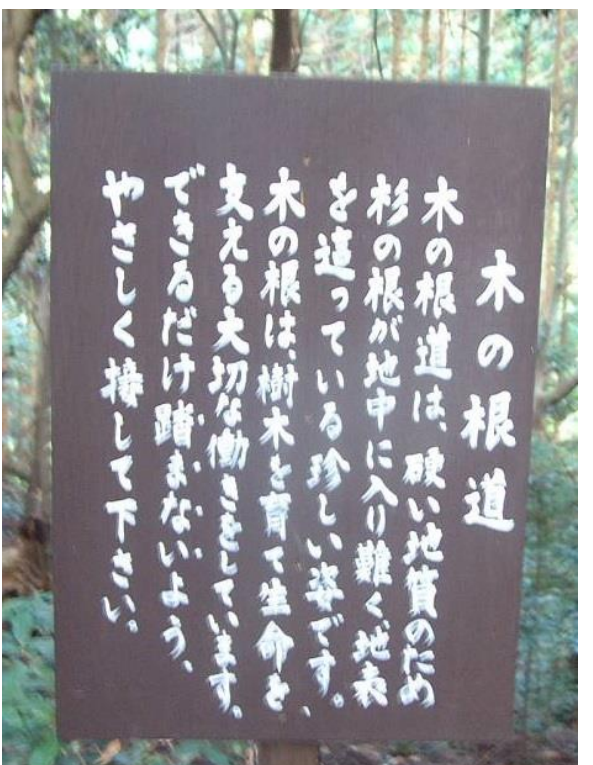 木の根道
木の根道は、硬い地質のため
杉の根が地中に入り難く、地表
を這っている珍しい姿です。
木の根は、樹木を育て生命を、
支える大切な働きをしています。
できるだけ踏まないよう、
やさしく接して下さい。